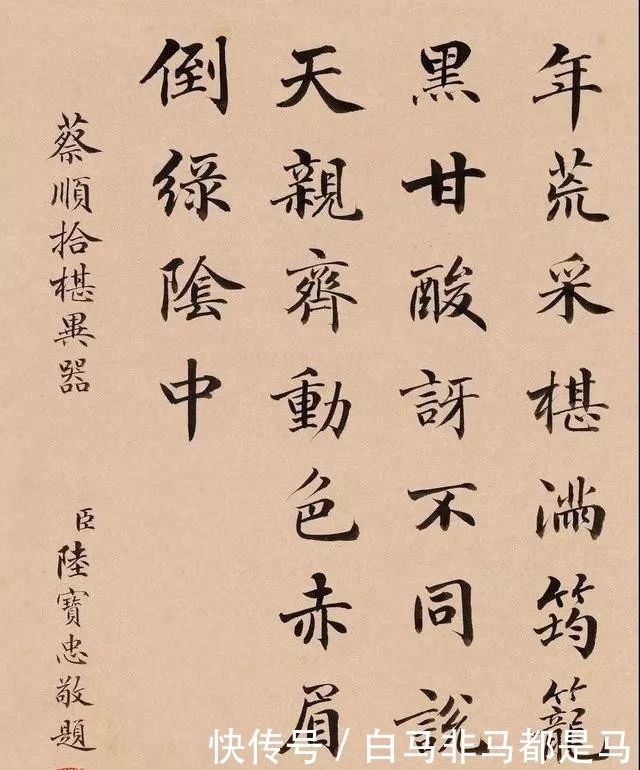 年荒采椹滿筠籠
黑甘酸訝不同說
天親齊動色赤眉
倒綠陰中
蔡順拾椹異器
臣陸寶忠敬題
快传号 / 白马非马都是马